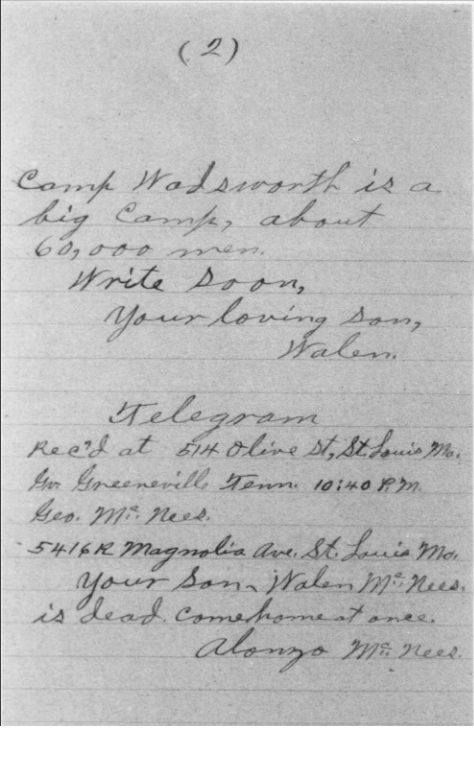 (2)
Camp Wadsworth is a
big Camp, about
60,000 men.
Write soon,
Your loving son,
Walen.
Telegram
Rec'd at 514 Olive St, St. Louis Mo.
Gr. Greeneville Tenn. 10:40 P.M.
Geo. Mc. Nees.
5416R Magnolia Ave. St. Louis Mo.
Your Son, Walen Mc. Nees.
is dead. Come home at once.
Alonzo Mc. Nees.